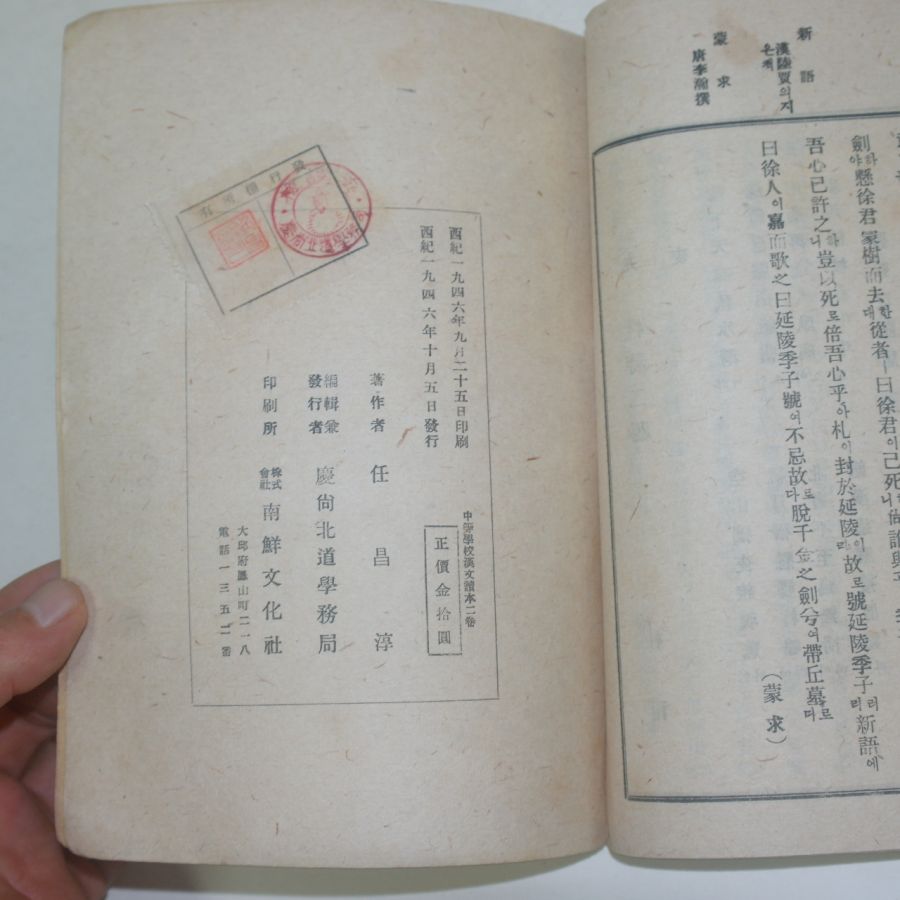 新語
漢陸賈의지
은책
蒙求
唐李瀚撰
劍하야懸徐君冢樹而去한대從者ㅣ曰徐君이已死
吾心已許之하니豈以死로倍吾心乎아札이封於延陵이라故로號延陵季子러라新語에
曰徐人이嘉而歌之曰延陵季子號여不忘故로다脫千金之劍兮여帶丘墓로다
(蒙求)
發行權所有
西紀一九四六年九月二十五日印刷
西紀一九四六年十月五日發行
中等學校漢文讀本二卷
正價金拾圓
著作者 任昌淳
編輯兼
發行者 慶尙北道學務局
印刷所 株式會社 南鮮文化社
大邱府鳳山町二一八
電話一三五二番